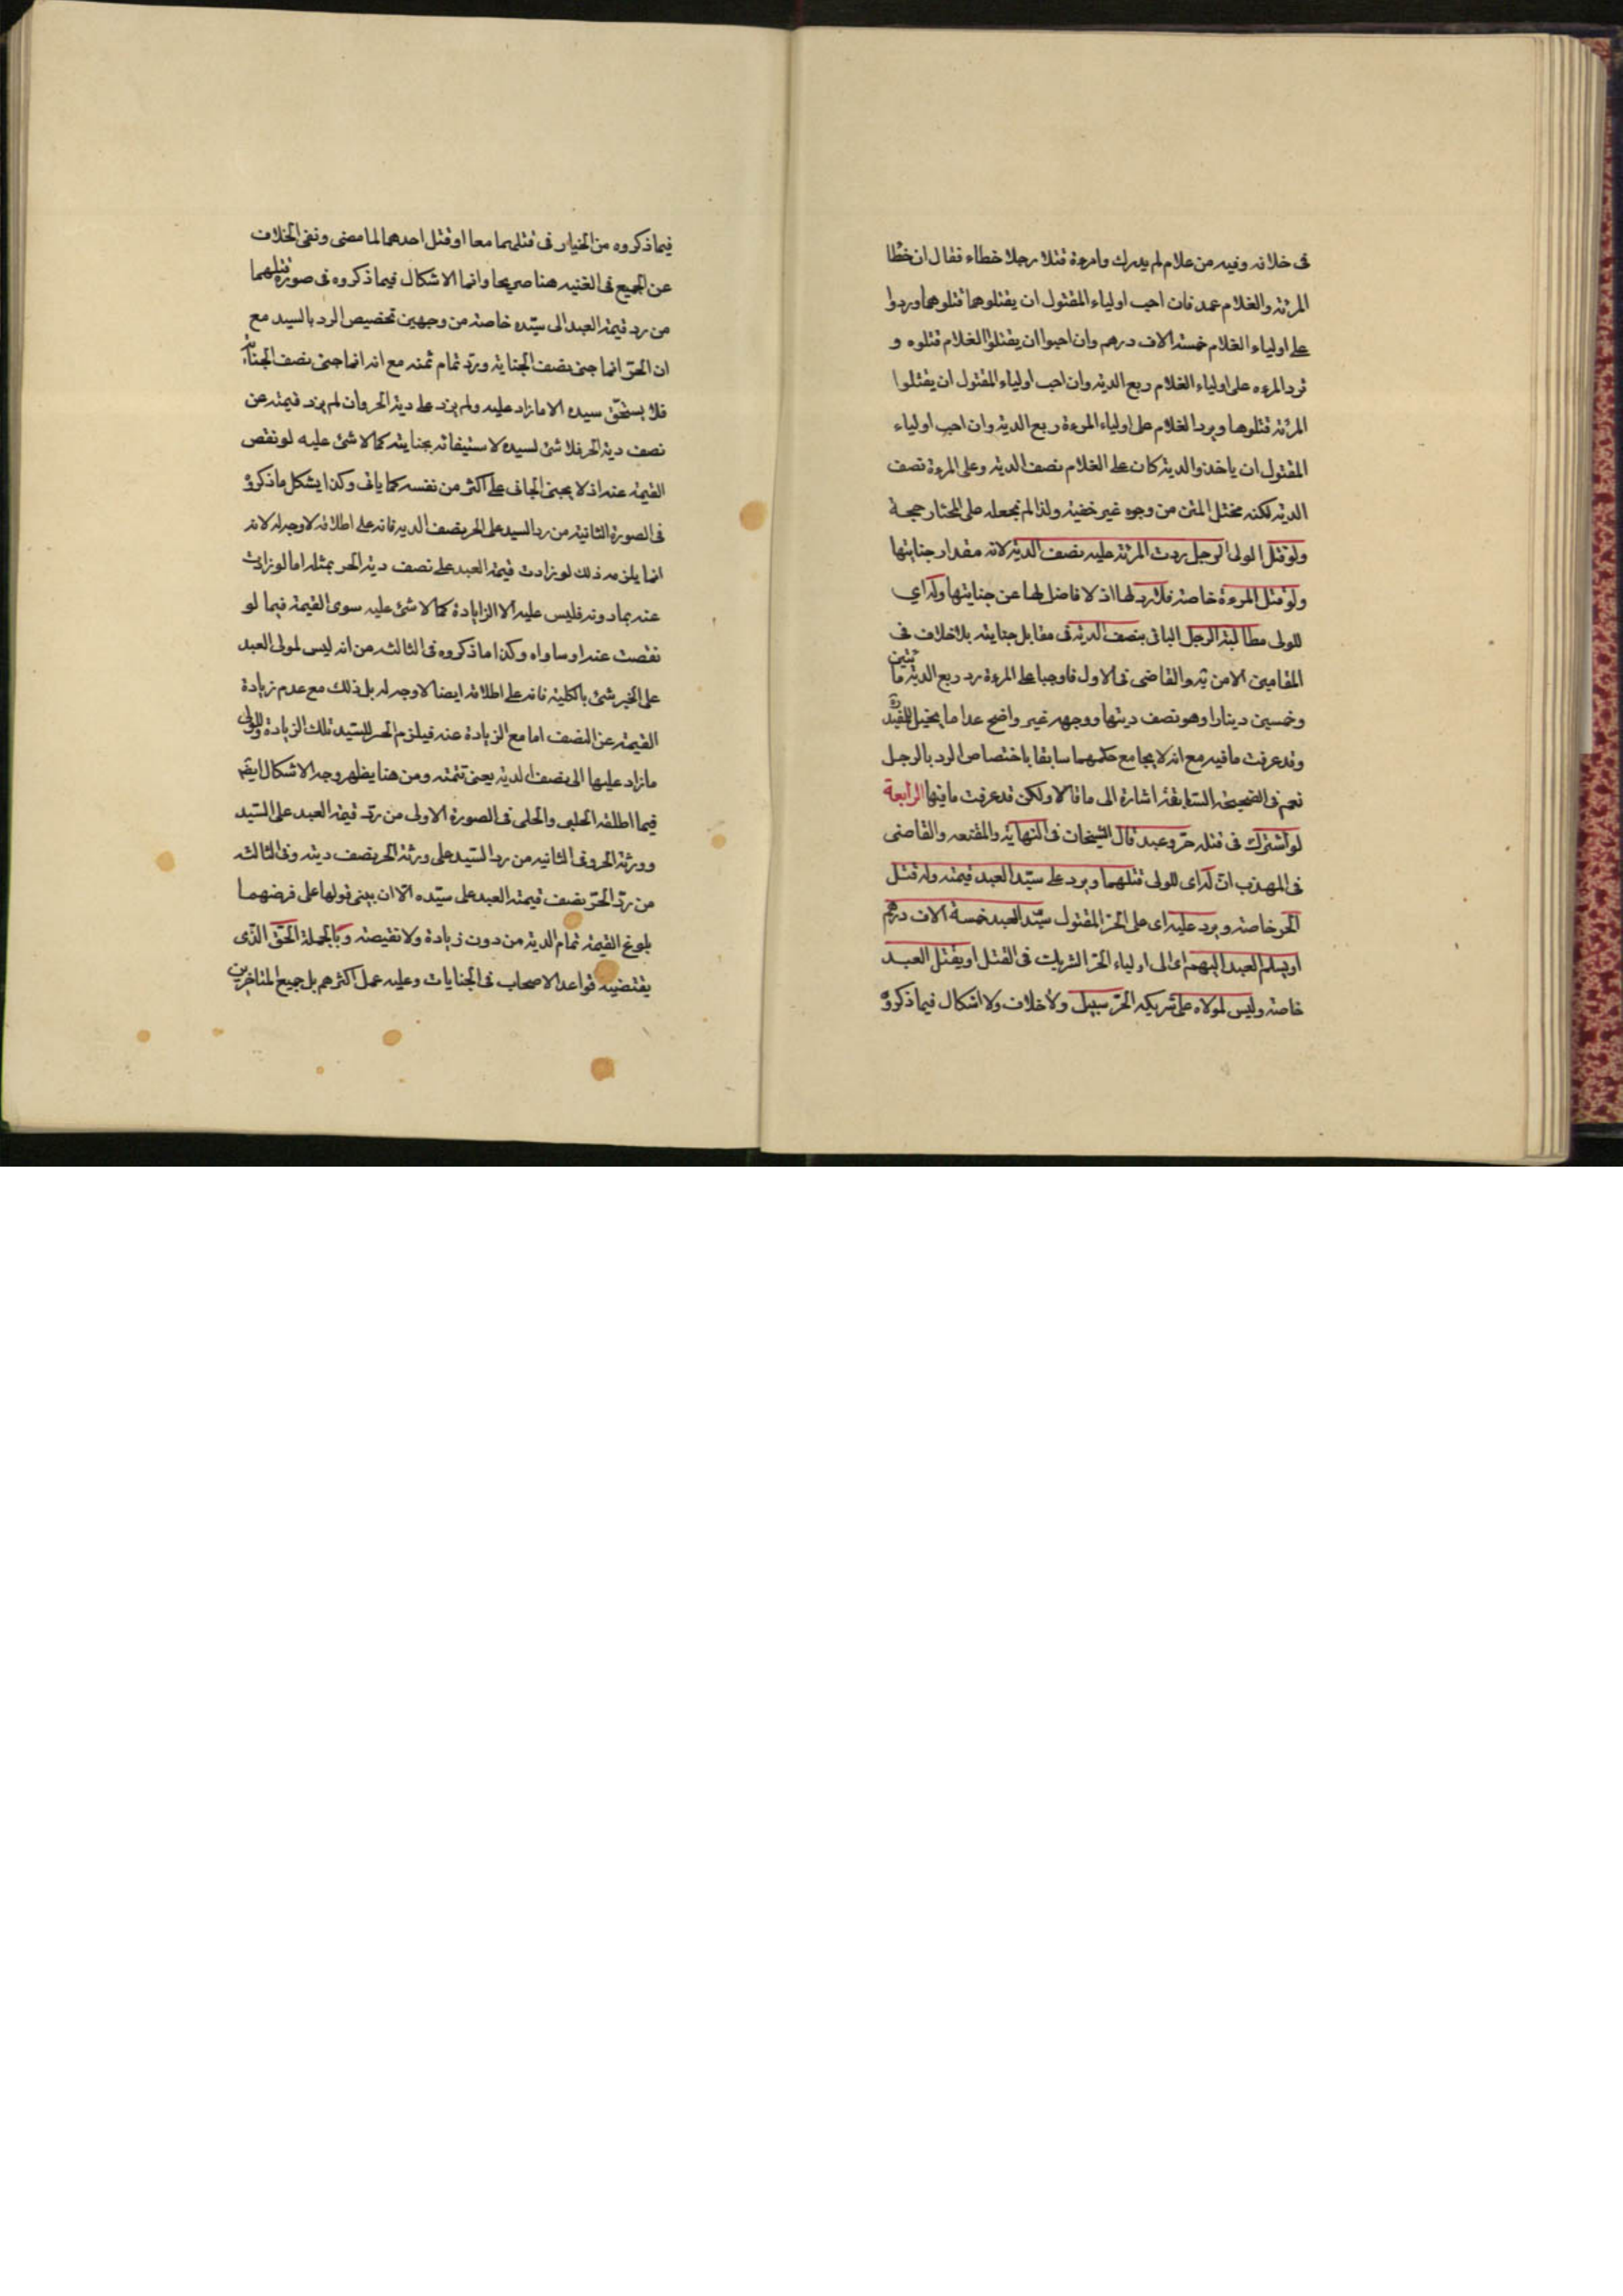 فى خلافه وفيه من غلام لم يدرك وامرءة قتلا رجلا خطاء فقال ان خطا
المرئة والغلام عمد فان احب اولياء المقتول ان يقتلوهما قتلوهما وردوا
على اولياء الغلام خمسة الاف درهم وان احبوا ان يقتلوا الغلام قتلوه و
ترد المرءه على اولياء الغلام ربع الدية وان احب اولياء المقتول ان يقتلوا
المرئة قتلوها ويرد الغلام على اولياء المرءة ربع الدية وان احب اولياء
المقتول ان ياخذوا الدية كان على الغلام نصف الدية وعلى المرءة نصف
الدية لكنه مختل المتن من وجوه غير خفية ولذا لم نجعله على المختار حجة
ولو قتل الولى الرجل ردت المرئة عليه نصف الدية لانه مقدار جنايتها
ولو قتل المرءة خاصة فلا رد لها اذ لا فاضل لها عن جنايتها وله اي
للولى مطالبة الرجل الباقى بنصف الدية فى مقابل جنايته بلا خلاف فى
المقامين الا من يه والقاضى فى الاول فاوجبا على المرءة رد ربع الدية ماتين
وخمسين دينارا وهو نصف ديتها ووجهه غير واضح عدا ما يتخيل للمفيد
وقد عرفت ما فيه مع انه لا يجامع حكمهما سابقا باختصاص الرد بالرجل
نعم فى الصحيحة السابقة اشارة الى ما قالا ولكن قد عرفت ما فيها الرابعة
لو اشترك فى قتله حر وعبد قال الشيخان فى النهاية والمقنعه والقاضى
فى المهذب ان له اى للولى قتلهما ويرد على سيد العبد قيمته وله قتل
الحر خاصة ويرد عليه اى على الحر المقتول سيد العبد خمسة الاف درهم
او يسلم العبد اليهم اى الى اولياء الحر الشريك فى القتل او يقتل العبد
خاصة وليس لمولاه على شريكه الحر سبيل ولا خلاف ولا اشكال فيما ذكروه
فيما ذكروه من الخيار فى قتلهما معا او قتل احدهما لما مضى ونفى الخلاف
عن الجميع فى الغنيه هنا صريحا وانما الاشكال فيما ذكروه فى صورة قتلهما
من رد قيمة العبد الى سيده خاصة من وجهين تخصيص الرد بالسيد مع
ان الحر انما جنى نصف الجناية ورد تمام ثمنه مع انه انما جنى نصف الجناية
فلا يستحق سيده الا ما زاد عليه ولم يزد على دية الحر وان لم يزد قيمته عن
نصف دية الحر فلا شئ لسيده لاستيفائه بجنايته كما لا شئ عليه لو نقص
القيمة عنه اذ لا يجنى الجانى على اكثر من نفسه كما ياتى وكذا يشكل ما ذكروه
فى الصورة الثانية من رد السيد على الحر نصف الديه فانه على اطلاقه لا وجه له لانه
انما يلزمه ذلك لو زادت قيمة العبد على نصف دية الحر بمثله اما لو زادت
عنه بما دونه فليس عليه الا الزايادة كما لا شئ عليه سوى القيمة فيما لو
نقصت عنه او ساواه وكذا ما ذكروه فى الثالثه من انه ليس لمولى العبد
على الحر شئ بالكلية فانه على اطلاقه ايضا لا وجه له بل ذلك مع عدم زيادة
القيمة عن النصف اما مع الزيادة عنه فيلزم الحر للسيد تلك الزيادة وللولى
ما زاد عليها الى نصف الدية يعنى تتمته ومن هنا يظهر وجه الاشكال ايضا
فيما اطلقه الحلبى والحلى فى الصورة الاولى من رد قيمة العبد على السيد
وورثة الحر وفى الثانيه من رد السيد على ورثة الحر نصف ديته وفى الثالثه
من رد الحر نصف قيمته العبد على سيده الا ان يبنى قولها على فرضهما
بلوغ القيمة تمام الدية من دون زيادة ولا نقيصة وبالجملة الحق الذى
يقتضيه قواعد الاصحاب فى الجنايات وعليه عمل اكثرهم بل جميع المتاخرين